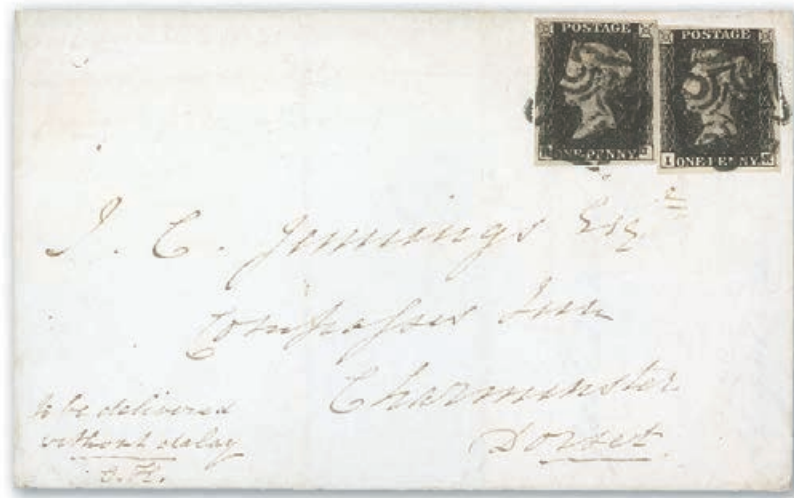 POSTAGE
ONE PENNY
POSTAGE
I ONE PENNY K
J. C. Jennings Esq
Compasses Inn
Charminster
Dorset
to be delivered
without delay